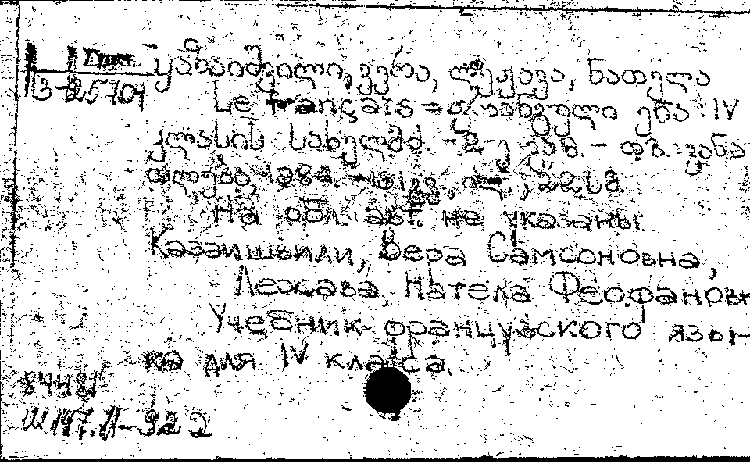 Груз.
3-25701
ყაზაიშვილი, ვერა, ლეჟავა, ნათელა
Le français = ფრანგული ენა: IV
კლასის სახელმძ. - 2-ე გამ. - თბ.: განა
თლება, 1984. - 22 სმ
На обл. авт. не указаны
Казаишвили, Вера Самсоновна,
Лежава, Натела Феофановн
Учебник французского язы-
ка для IV класса.
84